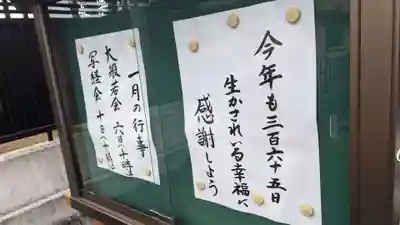 今年も三百六十五日
生かされいる幸福に
感謝しよう
一月の行事
大般若会 六日
写経会 十日